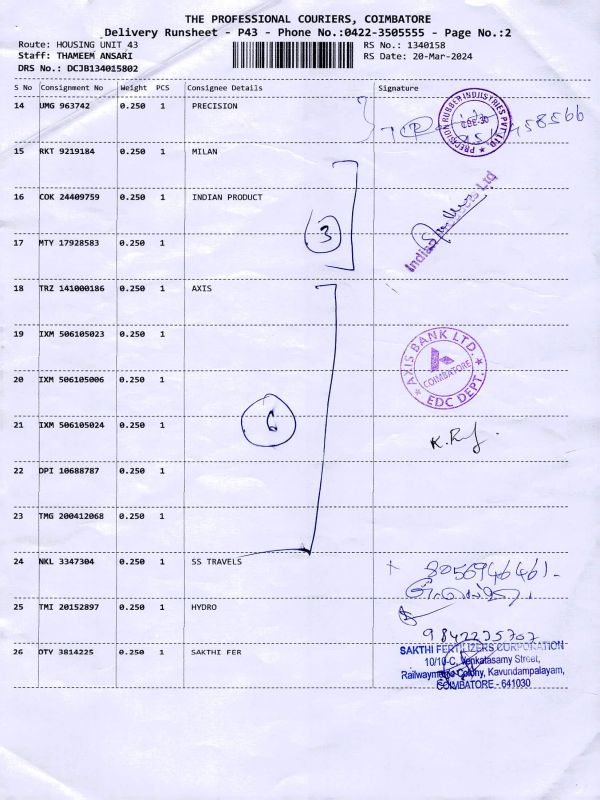 THE PROFESSIONAL COURIERS, COIMBATORE
Delivery Runsheet - P43 - Phone No.:0422-3505555 - Page No.:2
Route: HOUSING UNIT 43
Staff: THAMEEM ANSARI
DRS No.: DCJB134015802
RS No.: 1340158
RS Date: 20-Mar-2024
S No Consignment No Weight PCS Consignee Details Signature
14 UMG 963742 0.250 1 PRECISION
PRECISION RUBBER INDUSTRIES PVT LTD
CBE-30
15 RKT 9219184 0.250 1 MILAN
16 COK 24409759 0.250 1 INDIAN PRODUCT
3
Indian Ltd
17 MTY 17928583 0.250 1
18 TRZ 141000186 0.250 1 AXIS
19 IXM 506105023 0.250 1
AXIS BANK LTD.
COIMBATORE
EDC DEPT.
20 IXM 506105006 0.250 1
21 IXM 506105024 0.250 1
6
22 DPI 10688787 0.250 1
23 TMG 200412068 0.250 1
24 NKL 3347304 0.250 1 SS TRAVELS
8056946461
25 TMI 20152897 0.250 1 HYDRO
9842235707
26 OTY 3814225 0.250 1 SAKTHI FER
SAKTHI FERTILIZERS CORPORATION
10/10-C, Venkatasamy Street,
Colony, Kavundampalayam,
COIMBATORE - 641030